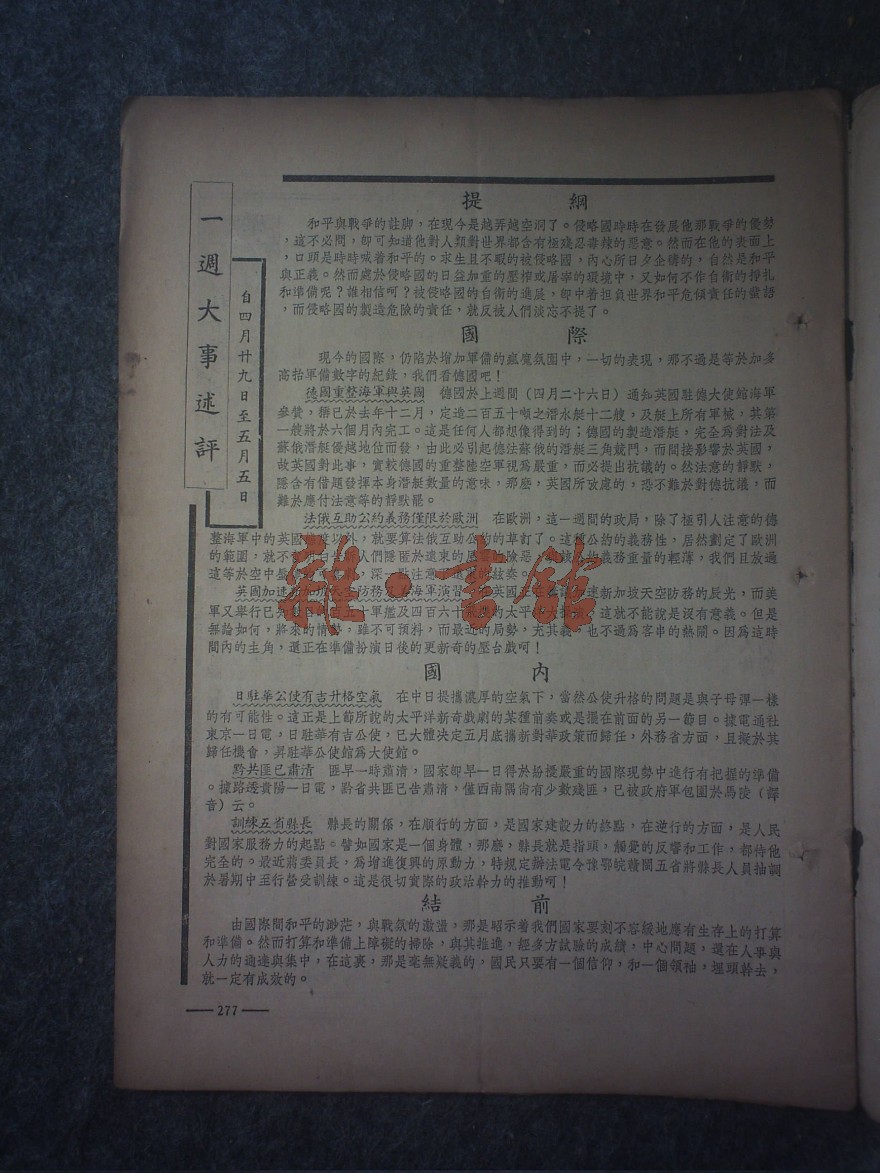 一週大事述評
自四月廿九日至五月五日
提綱
和平與戰爭的註脚，在現今是越弄越空洞了。侵略國時時在發展他那戰爭的優勢
，這不必問，卽可知道他對人類對世界都含有極殘忍毒辣的惡意。然而在他的表面上
，口頭是時時喊着和平的。求生且不暇的被侵略國，內心所日夕企禱的，自然是和平
與正義。然而處於侵略國的日益加重的壓搾或屠宰的環境中，又如何不作自衛的掙扎
和準備呢？誰相信呵？被侵略國的自衛的進展，卽中着担負世界和平危傾責任的讆語
，而侵略國的製造危險的責任，就反被人們淡忘不提了。
國際
現今的國際，仍陷於增加軍備的瘋魔氛圍中，一切的表現，那不過是等於加多
高抬軍備數字的紀錄，我們看德國吧！
德國重整海軍與英國　德國於上週間（四月二十六日）通知英國駐德大使館海軍
參贊，稱已於去年十二月，定造二百五十噸之潛水艇十二艘，及艇上所有軍械，其第
一艘將於六個月內完工。這是任何人都想像得到的；德國的製造潛艇，完全為對法及
蘇俄潛艇優越地位而發，由此必引起德法蘇俄的潛艇三角競鬥，而間接影響於英國，
故英國對此事，實較德國的重整陸空軍視為嚴重，而必提出抗議的。然法意的靜默，
隱含有借題發揮本身潛艇數量的意味，那麼，英國所攷慮的，恐不難於對德抗議，而
難於應付法意等的靜默罷。
法俄互助公約義務僅限於歐洲　在歐洲，這一週間的政局，除了極引人注意的德
整海軍中的英國態度以外，就要算法俄互助公約的草訂了。這種公約的義務性，居然劃定了歐洲
的範圍，就不啻明白告訴人們隱匿於遠東的風雲險惡，義務重量的輕薄，我們且放過
這等於空中，深一點注意奏
英國加速新加坡天空防務海軍演習　在英國加速新加坡天空防務的辰光，而美
軍又舉行已五十軍艦及四百六十的太平洋大操演，這就不能說是沒有意義。但是
無論如何，將來的情勢，雖不可預料，而最近的局勢，充其義，也不過為客串的熱鬧。因為這時
間內的主角，還正在準備扮演日後的更新奇的壓台戲呵！
國內
日駐華公使有吉升格空氣　在中日提攜濃厚的空氣下，當然公使升格的問題是與子母彈一樣
的有可能性。這正是上節所說的太平洋新奇戲劇的某種前奏或是擺在前面的另一節目。據電通社
東京一日電，日駐華有吉公使，已大體決定五月底攜新對華政策而歸任，外務省方面，且擬於其
歸任機會，昇駐華公使館為大使館。
黔共匪已肅清　匪早一時肅清，國家卽早一日得於紛擾嚴重的國際現勢中進行有把握的準備
。據路透貴陽一日電，黔省共匪已告肅清，僅西南隅尙有少數殘匪，已被政府軍包圍於馬陵（譯
音）云。
訓練五省縣長　縣長的關係，在順行的方面，是國家建設力的終點，在逆行的方面，是人民
對國家服務力的起點。譬如國家是一個身體，那麼，縣長就是指頭，觸覺的反響和工作，都待他
完全的。最近蔣委員長，為增進復興的原動力，特規定辦法電令豫鄂皖贛閩五省將縣長人員抽調
於暑期中至行營受訓練。這是很切實際的政治幹力的推動呵！
結前
由國際間和平的渺茫，與戰氛的瀲灩，那是昭示着我們國家要刻不容緩地應有生存上的打算
和準備。然而打算和準備上障礙的掃除，與其推進，經多方試驗的成績，中心問題，還在人事與
人力的通達與集中，在這裏，那是毫無疑義的，國民只要有一個信仰，和一個領袖，埋頭幹去，
就一定有成效的。
277
雜·書館